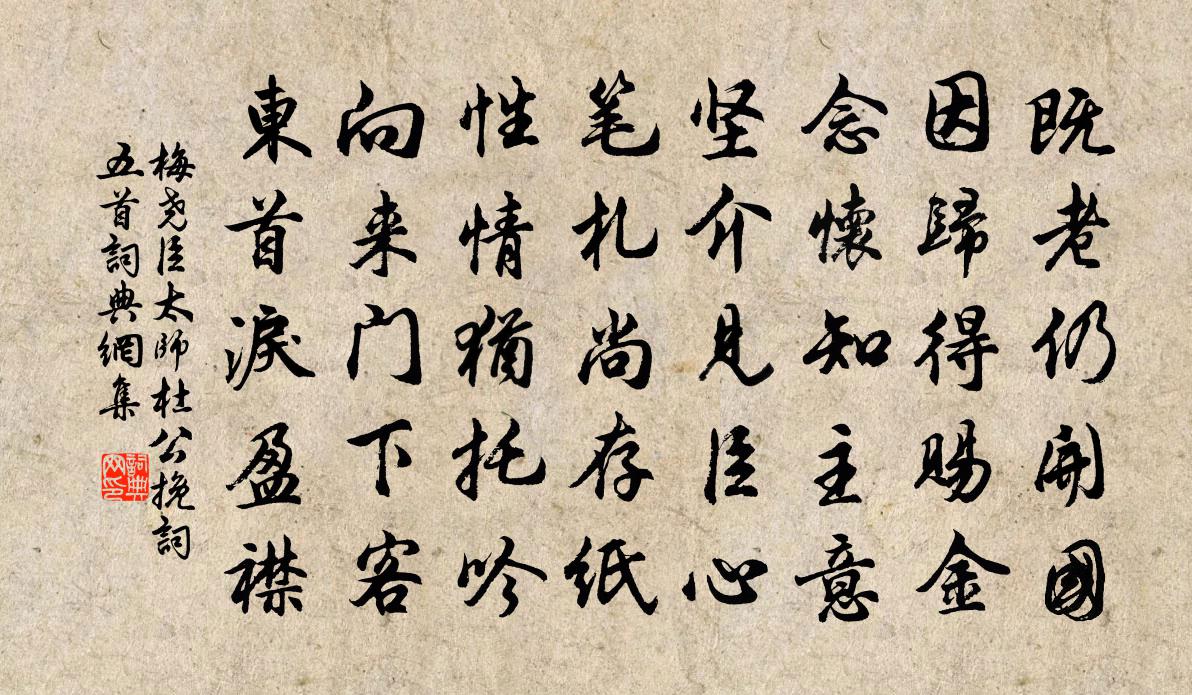 既老仍开國
因歸得賜金
念懷知主意
坚介見臣心
笔札尚存紙
性情猶托吟
向来门下客
東首淚盈襟
梅尧臣太師杜公挽詞
五首詞典網集
詞典
网印